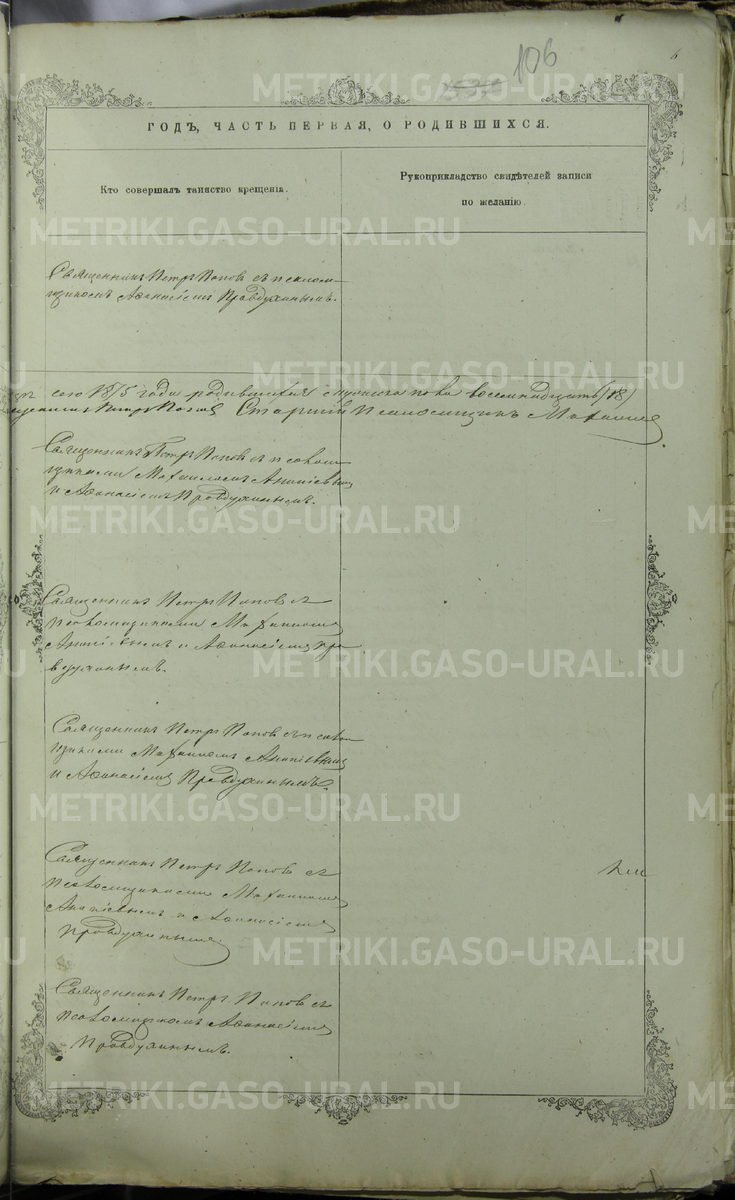 106
6
ГОДЪ, ЧАСТЬ ПЕРВАЯ, О РОДИВШИХСЯ.
Кто совершалъ таинство крещенія.
Рукоприкладство свидѣтелей записи
по желанію.
Священникъ Петръ Поповъ съ псалом-
щикомъ Аѳанасіемъ Правдухинымъ.
сего 1875 года родившихся мужеска пола восемнадцать (18)
Петръ Поповъ Старшій Псаломщикъ Михаилъ
Священникъ Петръ Поповъ съ псалом-
щиками Михаиломъ Ананіевымъ
и Аѳанасіемъ Правдухинымъ.
Священникъ Петръ Поповъ съ
псаломщиками Михаиломъ
Ананіевымъ и Аѳанасіемъ Пра-
вдухинымъ.
Священникъ Петръ Поповъ съ псалом
щиками Михаиломъ Ананіевымъ
и Аѳанасіемъ Правдухинымъ.
Священникъ Петръ Поповъ съ
псаломщиками Михаиломъ
Ананіевымъ и Аѳанасіемъ
Правдухинымъ.
Священникъ Петръ Поповъ съ
псаломщикомъ Аѳанасіемъ
Правдухинымъ.
METRIKI.GASO-URAL.RU